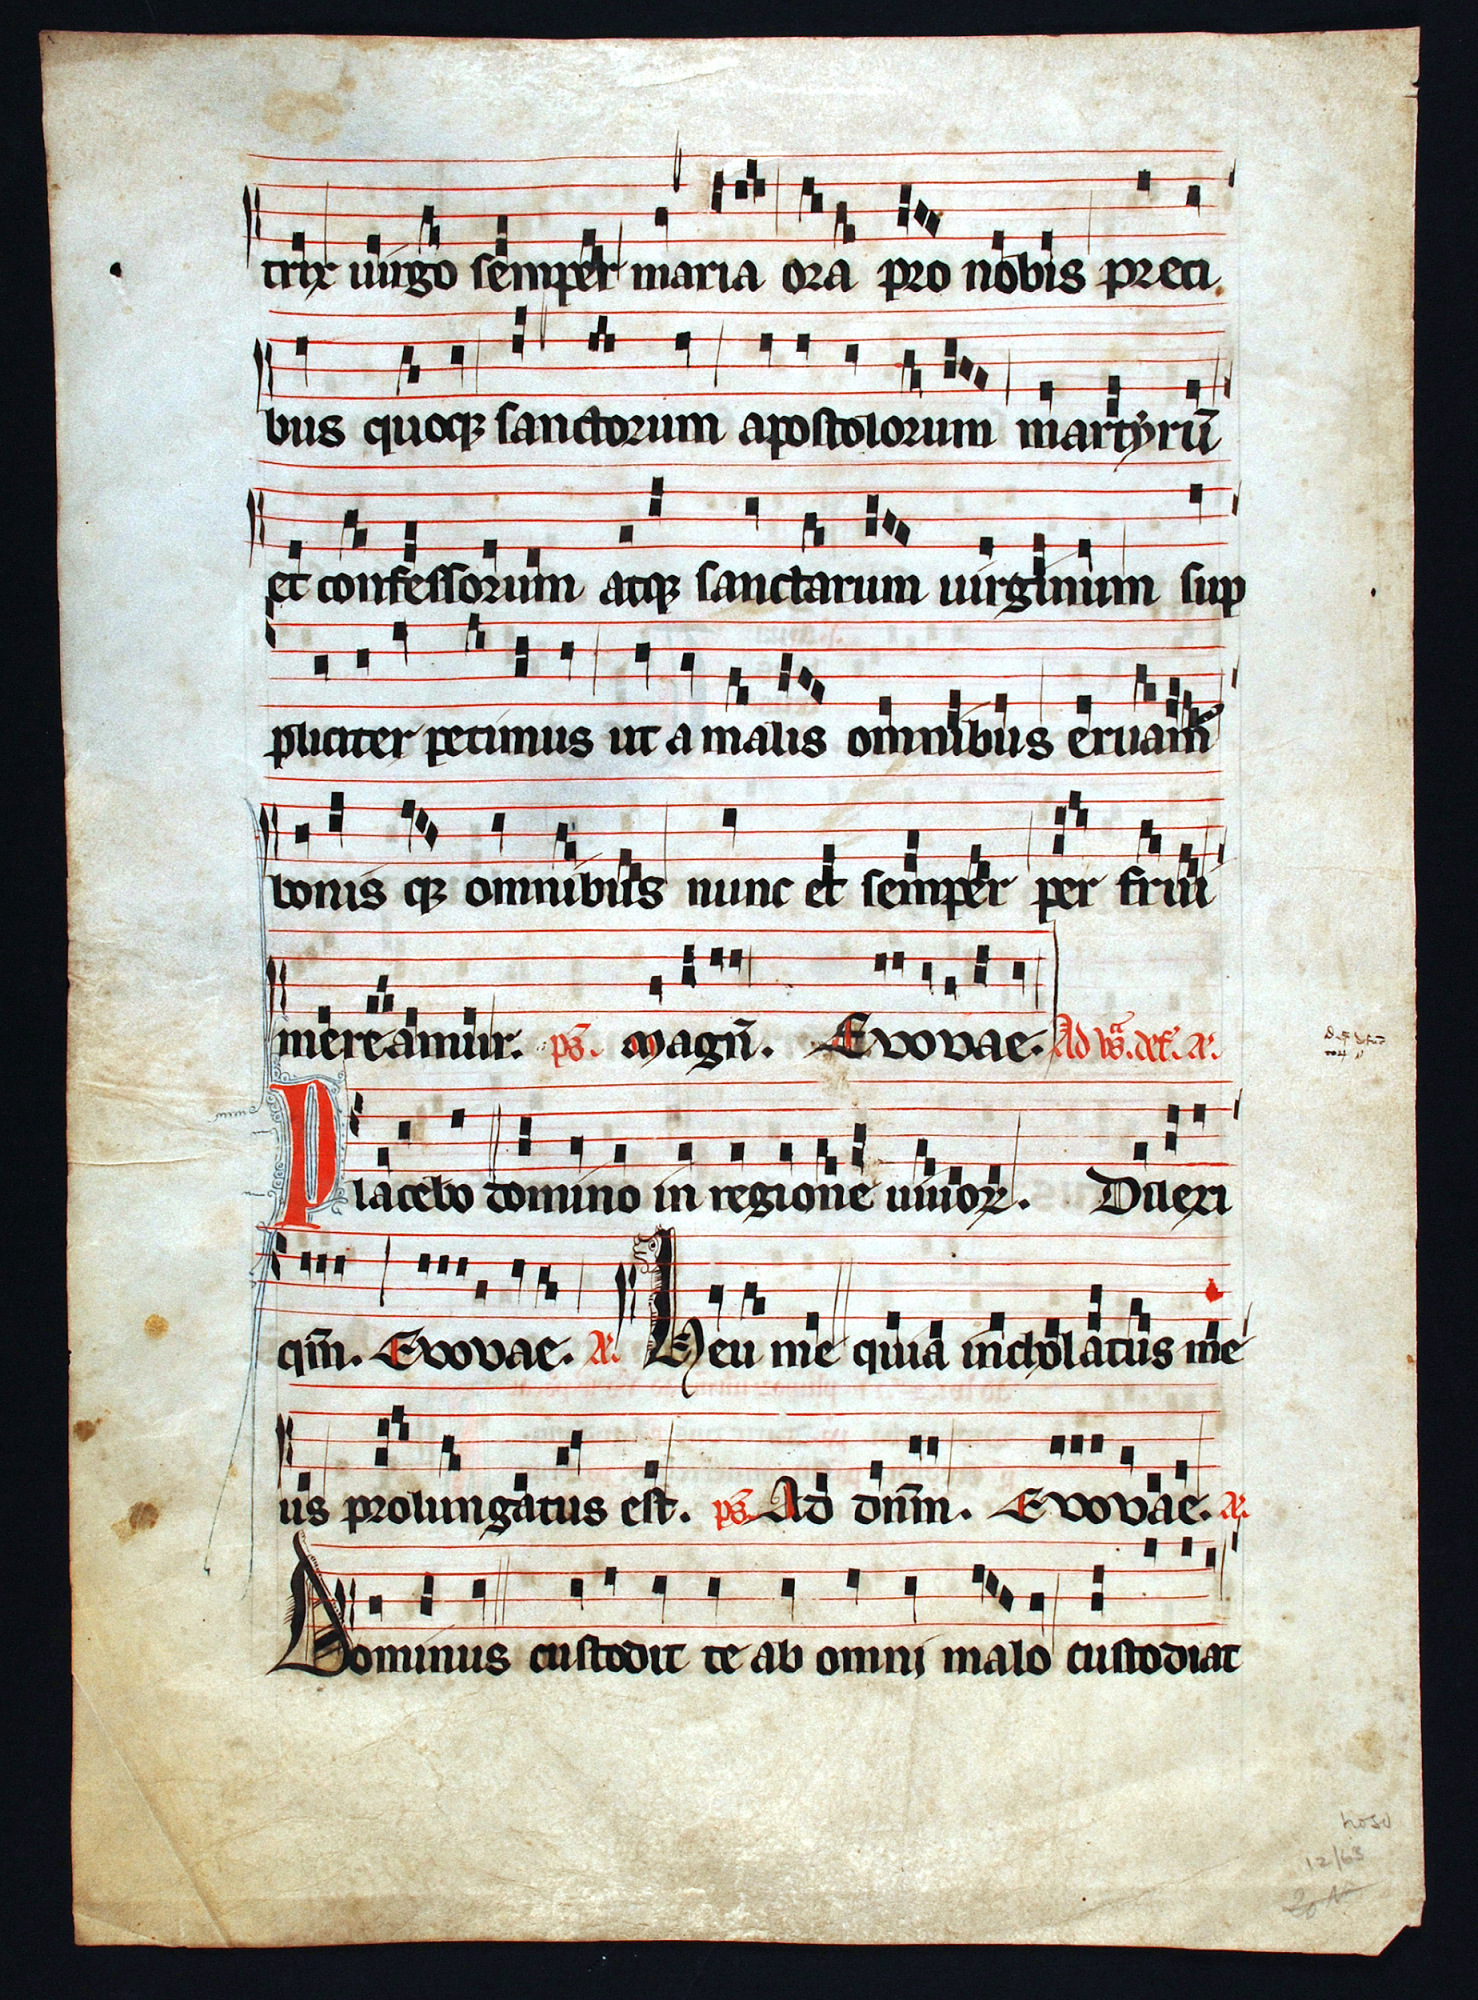 trix uirgo semper maria ora pro nobis preci
bus quoqꝫ sanctorum apostolorum martyrū
et confessorum atqꝫ sanctarum uirginum sup
pliciter petimus ut a malis omnibus eruam̄
bonis qꝫ omnibus nunc et semper per frui
mereamur. ps̄. magn̄. Evovae. Ad
Placebo domino in regione uiuoꝝ. Dilexi
qm̄. Evovae. Heu me quia incholatus me
us prolungatus est. ps̄. Ad dn̄m. Evovae.
Dominus custodit te ab omni malo custodiat
12/63